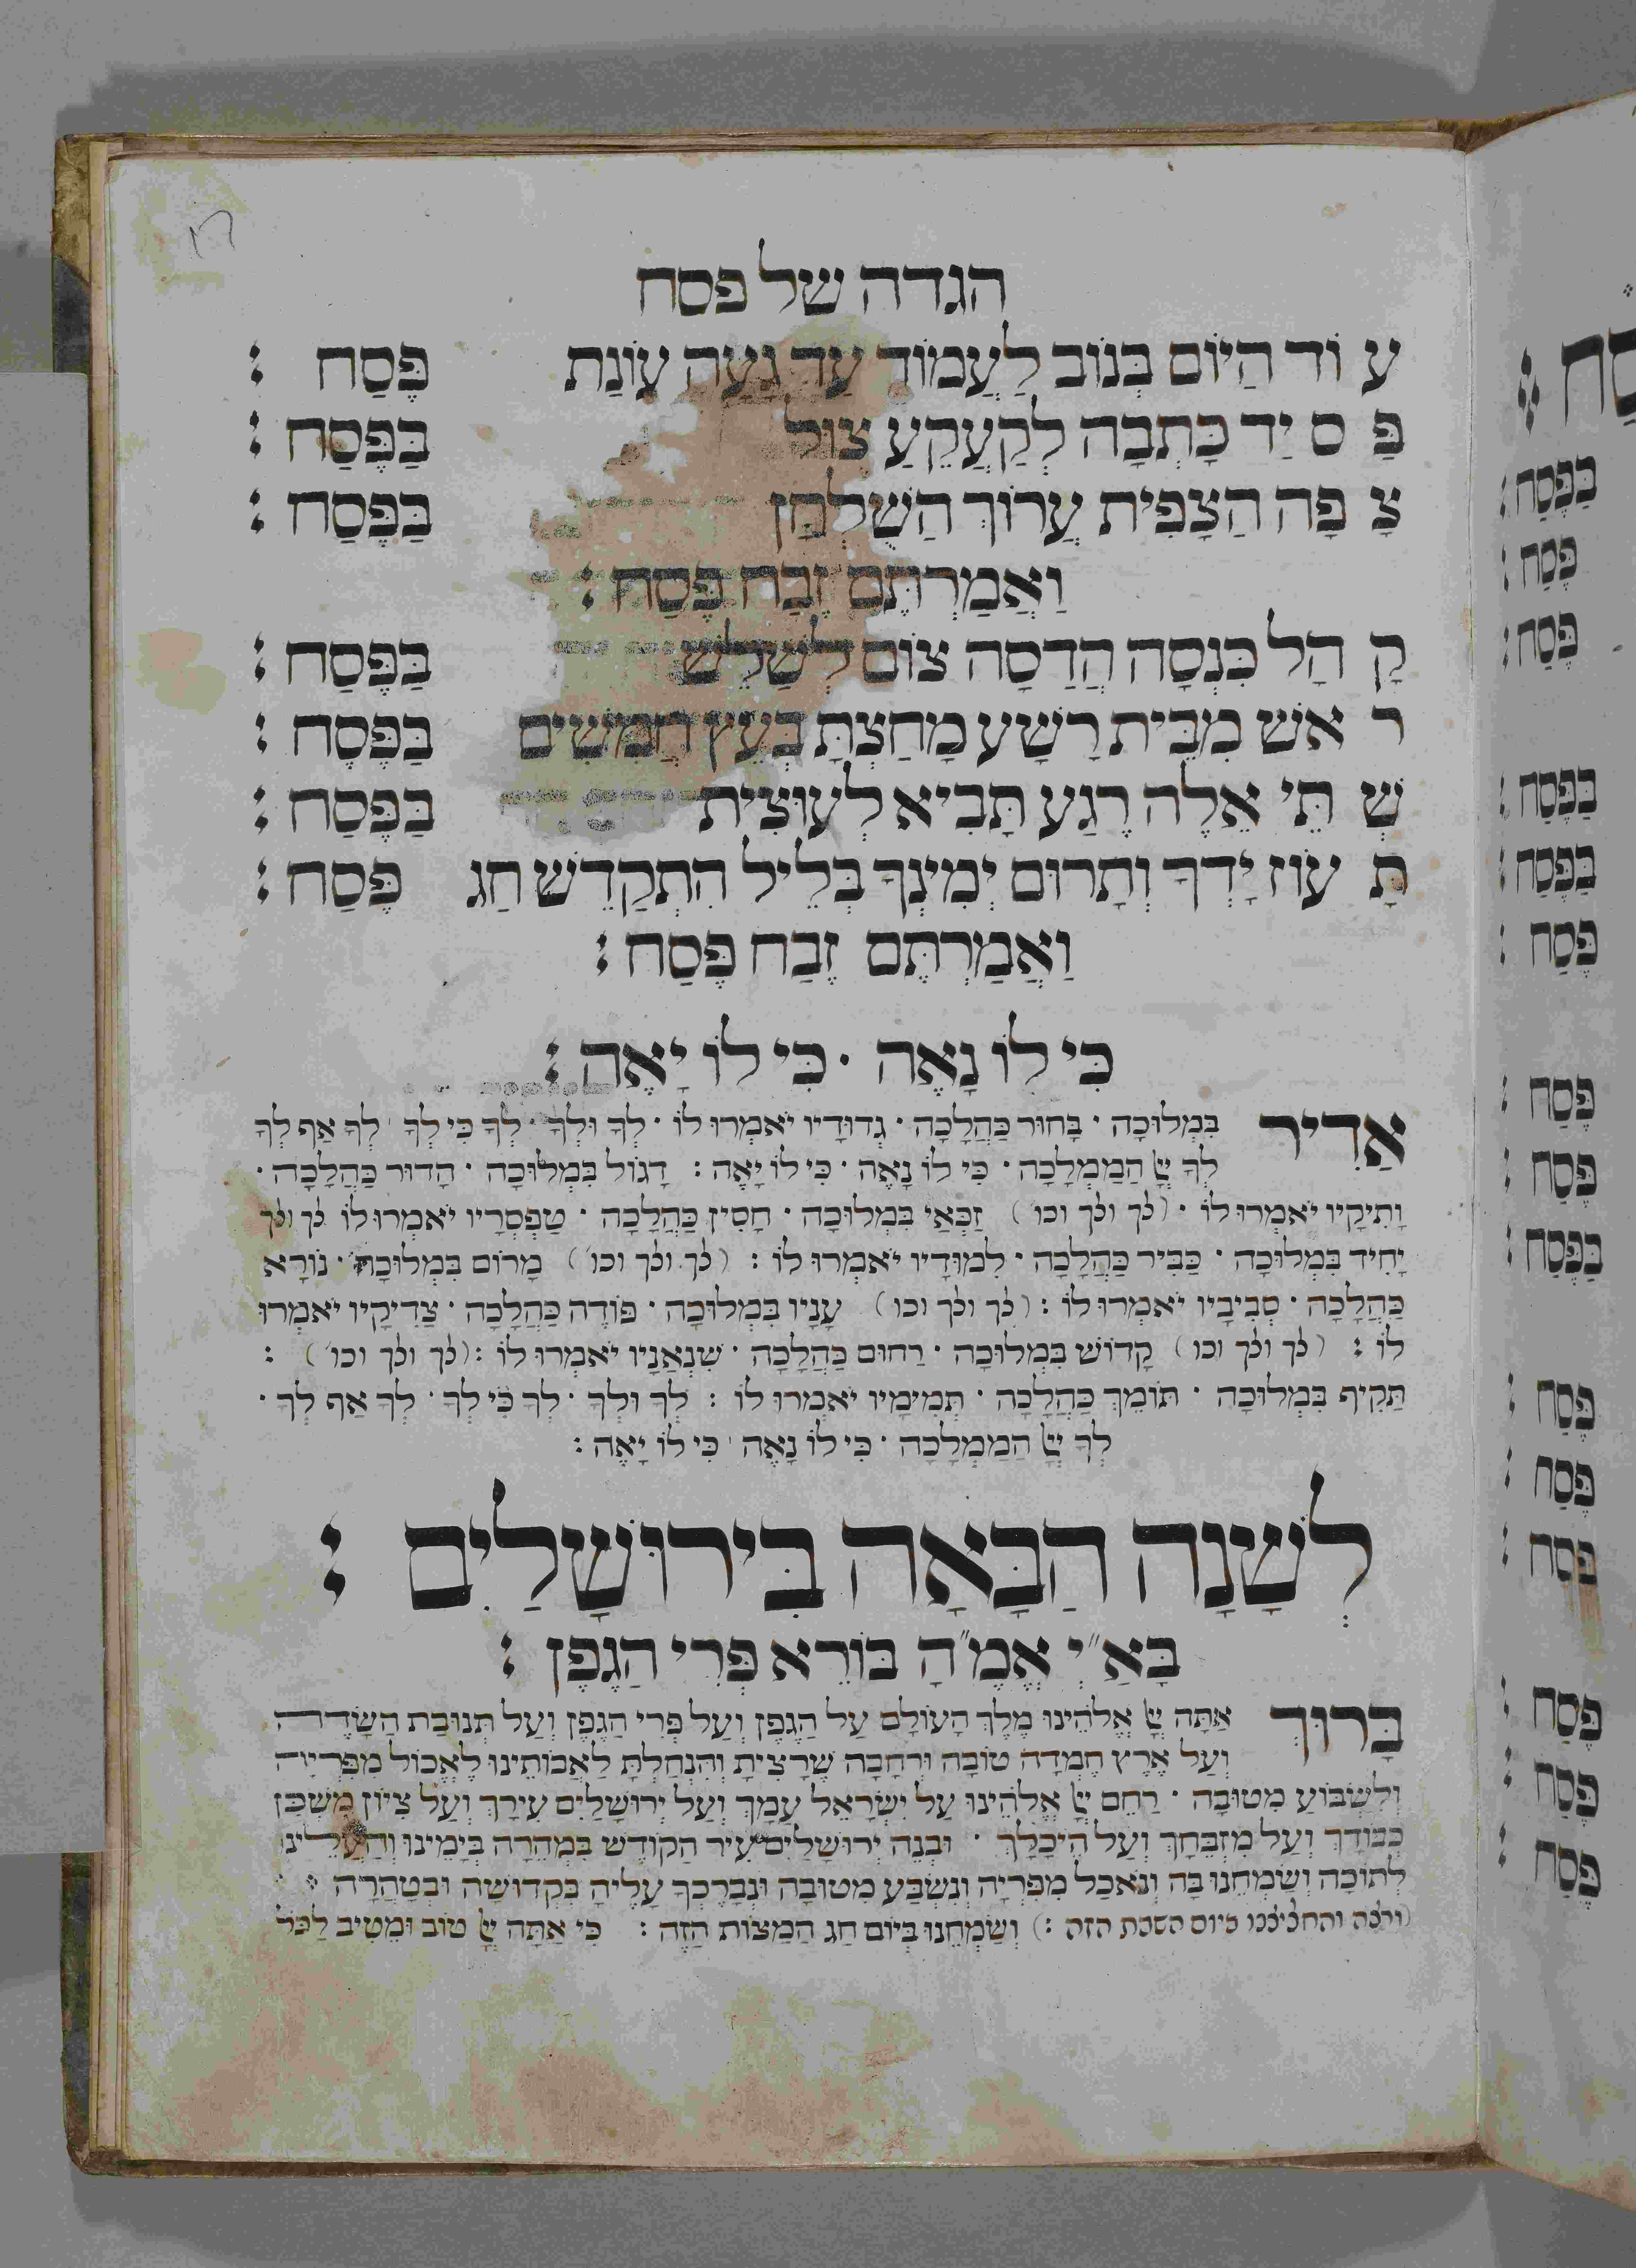 הגדה של פסח
ע וֹד הַיּוֹם בְּנוֹב לַעֲמוֹד עַד גָעָה עוֹנַת פֶּסַח :
פַּ ס יַד כָּתְבָה לְקַעֲקֵעַ צוּל בַּפֶּסַח :
צָ פֹה הַצָפִית עֲרוֹךְ הַשֻׁלְחָן בַּפֶּסַח :
וַאֲמַרְתֶּם זֶבַח פֶּסַח :
קָ הָל כִּנְסָה הֲדַסָה צוֹם לְשַׁלֵשׁ בַּפֶּסַח :
ר אשׁ מִבֵּית רָשָׁע מָחַצְתָּ בְּעֵץ חֲמִשִׁים בַּפֶּסַח :
שְׁ תֵּי אֵלֶה רֶגַע תָּבִיא לְעוּצִית בַּפֶּסַח :
תָּ עוֹז יָדְךָ וְתָרוּם יְמִינְךָ בְּלֵיל הִתְקַדֵשׁ חַג פֶּסַח :
וַאֲמַרְתֶּם זֶבַח פֶּסַח :
כִּי לוֹ נָאֶה · כִּי לוֹ יָאֶה :
אַדִיר בִּמְלוּכָה · בָּחוּר כַּהֲלָכָה · גְדוּדָיו יֹאמְרוּ לוֹ · לְךָ וּלְךָ · לְךָ כִּי לְךָ · לְךָ אַף לְךָ
לְךָ יְיָ הַמַמְלָכָה · כִּי לוֹ נָאֶה · כִּי לוֹ יָאֶה : דָגוּל בִּמְלוּכָה · הָדוּר כַּהֲלָכָה ·
וָתִיקָיו יֹאמְרוּ לוֹ · (לך ולך וכו׳) זַכְּאַי בִּמְלוּכָה · חָסִין כַּהֲלָכָה · טַפְסְרָיו יֹאמְרוּ לוֹ לך ולך
יָחִיד בִּמְלוּכָה · כַּבִּיר כַּהֲלָכָה · לִמוּדָיו יֹאמְרוּ לוֹ : (לך ולך וכו׳) מָרוֹם בִּמְלוּכָה · נוֹרָא
כַּהֲלָכָה · סְבִיבָיו יֹאמְרוּ לוֹ : (לך ולך וכו) עָנָיו בִּמְלוּכָה · פּוֹדֶה כַּהֲלָכָה · צַדִיקָיו יֹאמְרוּ
לוֹ : (לך ולך וכו) קָדוֹשׁ בִּמְלוּכָה · רַחוּם כַּהֲלָכָה · שִׁנְאַנָיו יֹאמְרוּ לוֹ : (לך ולך וכו׳) :
תַּקִיף בִּמְלוּכָה · תּוֹמֵךְ כַּהֲלָכָה · תְּמִימָיו יֹאמְרוּ לוֹ : לְךָ וּלְךָ · לְךָ כִּי לְךָ · לְךָ אַף לְךָ ·
לְךָ יְיָ הַמַמְלָכָה · כִּי לוֹ נָאֶה · כִּי לוֹ יָאֶה :
לְשָׁנָה הַבָּאָה בִּירוּשָׁלַיִם :
בָּאַ״יְ אֱמֶ״הָ בּוֹרֵא פְּרִי הַגֶפֶן :
בָּרוּךְ אַתָּה יְיָ אֱלֹהֵינוּ מֶלֶךְ הָעוֹלָם עַל הַגֶפֶן וְעַל פְּרִי הַגֶפֶן וְעַל תְּנוּבַת הַשָׂדֶה
וְעַל אֶרֶץ חֶמְדָה טוֹבָה וּרְחָבָה שֶׁרָצִיתָ וְהִנְחַלְתָּ לַאֲבוֹתֵינוּ לֶאֱכוֹל מִפִּרְיָה
וְלִשְׂבּוֹעַ מִטוּבָה · רַחֵם יְיָ אֱלֹהֵינוּ עַל יִשְׂרָאֵל עַמָךְ וְעַל יְרוּשָׁלַיִם עִירָךְ וְעַל צִיוֹן מִשְׁכַּן
כְּבוֹדָךְ וְעַל מִזְבַּחָךְ וְעַל הֵיכָלָךְ · וּבְנֵה יְרוּשָׁלַיִם עִיר הַקוֹדֶשׁ בִּמְהֵרָה בְּיָמֵינוּ וְהַעֲלֵינוּ
לְתוֹכָהּ וְשַׂמְחֵנוּ בָּהּ וְנֹאכַל מִפִּרְיָהּ וְנִשְׂבַּע מִטוּבָהּ וּנְבָרֶכְךָ עָלֶיהָ בִּקְדוּשָׁה וּבְטָהֳרָה :
(ורצה והחליצנו ביום השבת הזה :) וְשַׂמְחֵנוּ בְּיוֹם חַג הַמַצוֹת הַזֶה : כִּי אַתָּה יְיָ טוֹב וּמֵטִיב לַכֹּל